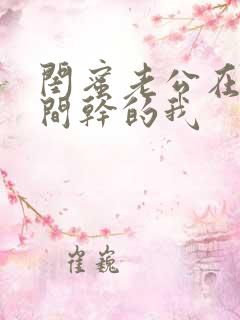 閨蜜老公在
間幹的我
崔巍